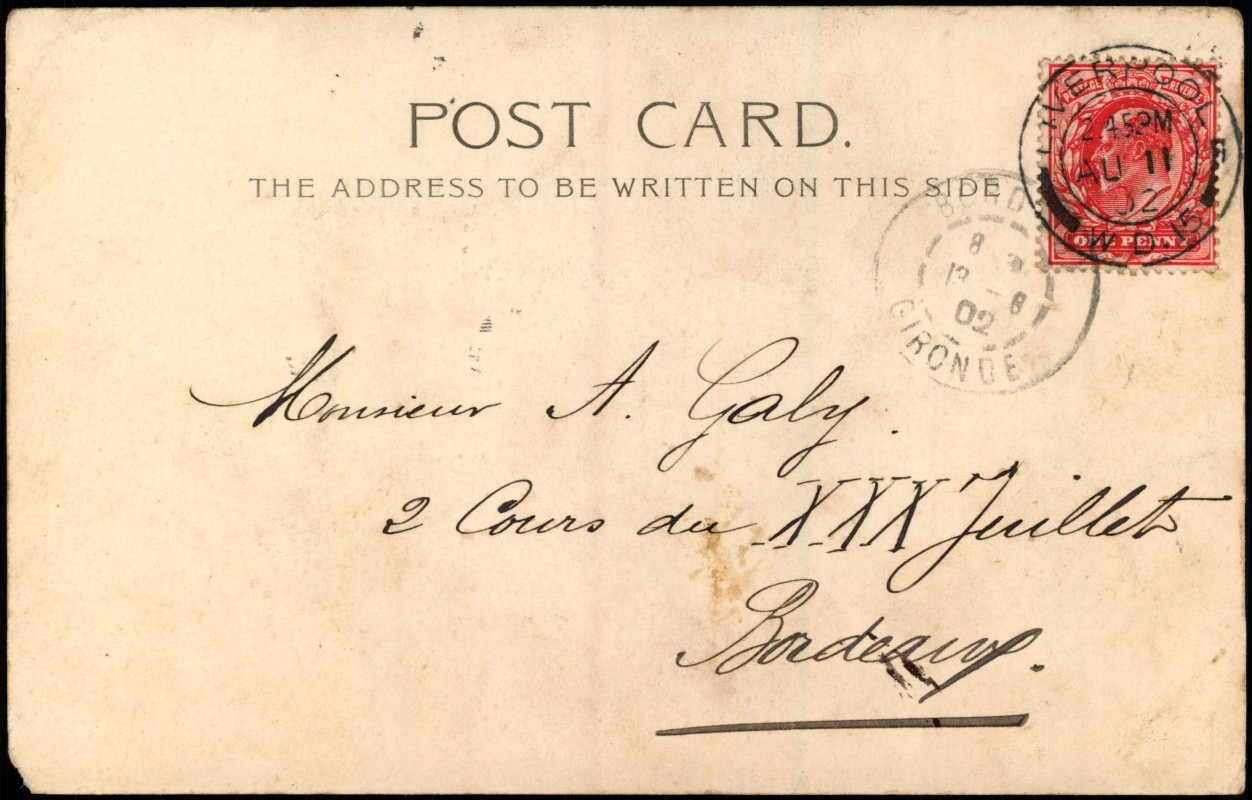 POST CARD.
THE ADDRESS TO BE WRITTEN ON THIS SIDE
POSTAGE & REVENUE
ONE PENNY
LIVERPOOL
2.45PM
AU 11
02
W.D.15
BORD
8
13 - 8
02
GIRONDE
Monsieur A. Galy.
2 Cours du XXX Juillet
Bordeaux.